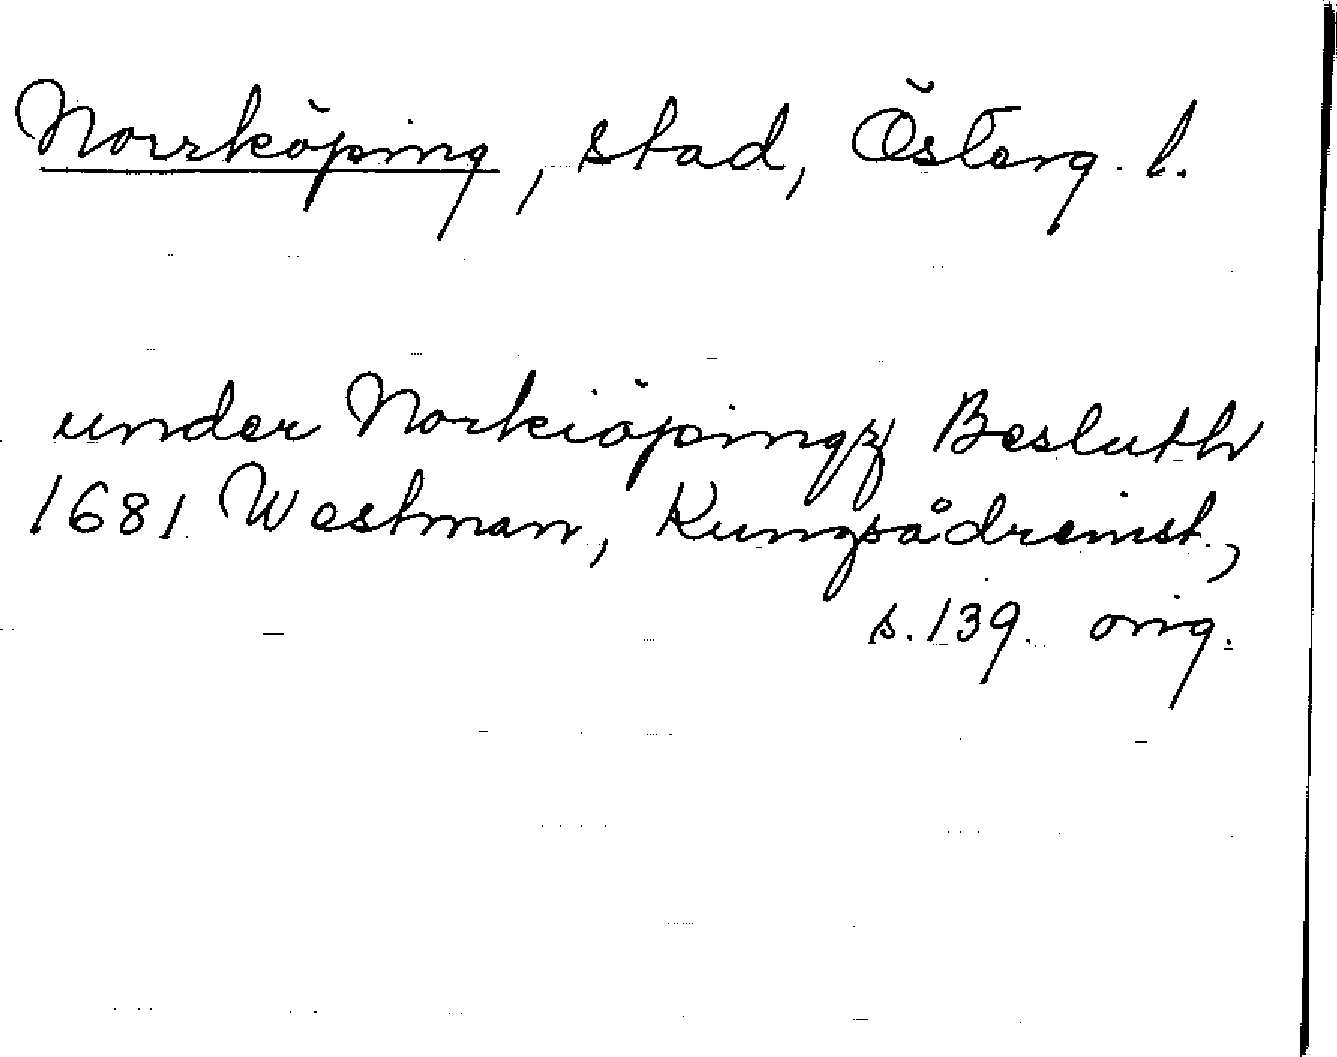 Norrköping, stad, Österg. l.
under Norkiöpingz Besluth
1681 Westman, Kungsådreinst.,
s. 139. orig.